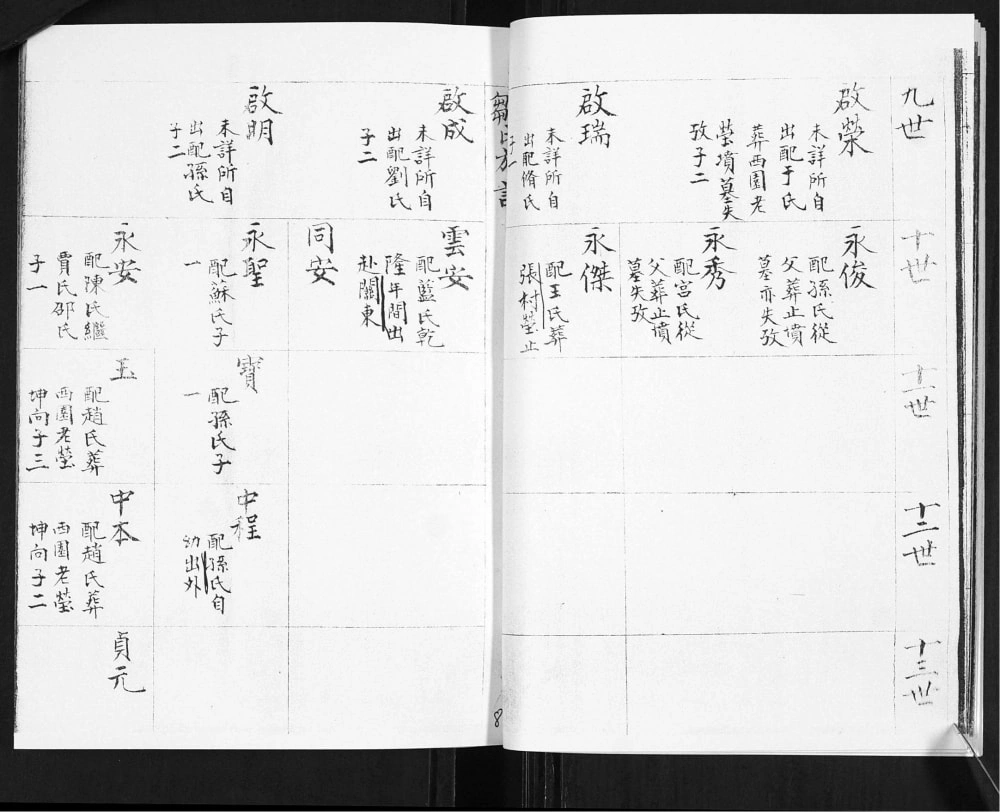 九世
啟榮
未詳所自
出配于氏
葬西園老
塋墳墓失
攷子二
啟瑞
未詳所自
出配脩氏
十世
永俊
配孫氏從
父葬止墳
墓亦失攷
永秀
配宮氏從
父葬止墳
墓失攷
永傑
配王氏葬
張村塋止
十一世
十二世
十三世
啟成
未詳所自
出配劉氏
子二
啟明
未詳所自
出配孫氏
子二
雲安
配藍氏乾
隆年間出
赴關東
同安
永聖
配蘇氏子
一
永安
配陳氏繼
賈氏邵氏
子一
寶
配孫氏子
一
玉
配趙氏葬
西園老塋
坤向子三
中程
配孫氏自
幼出外
中本
配趙氏葬
西園老塋
坤向子二
貞元
8